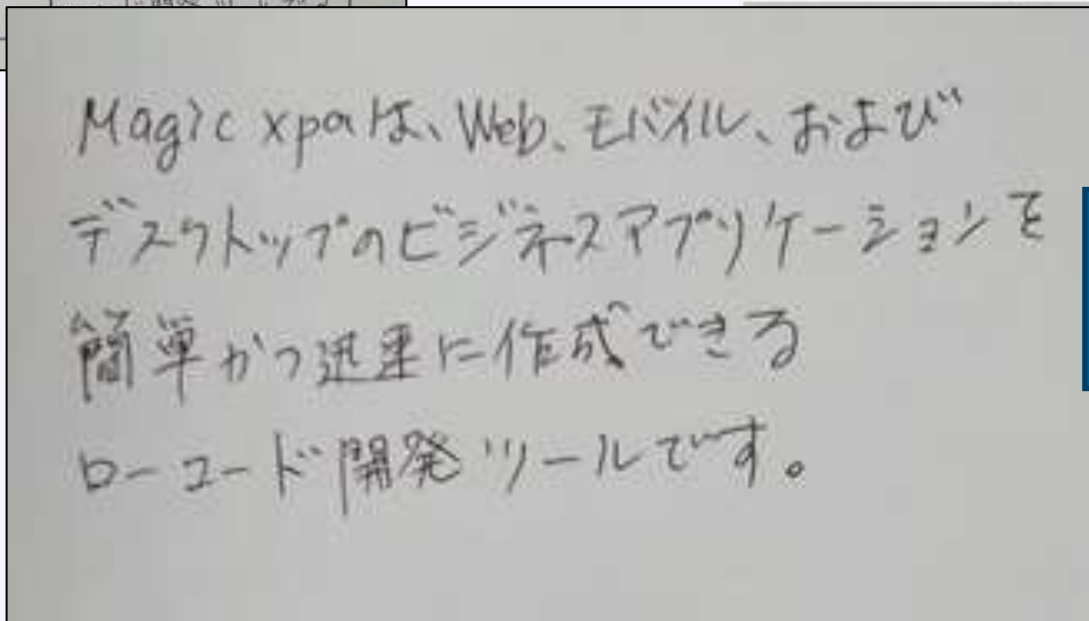 Magic xpaは、Web、モバイル、および
デスクトップのビジネスアプリケーションを
簡単かつ迅速に作成できる
ローコード開発ツールです。